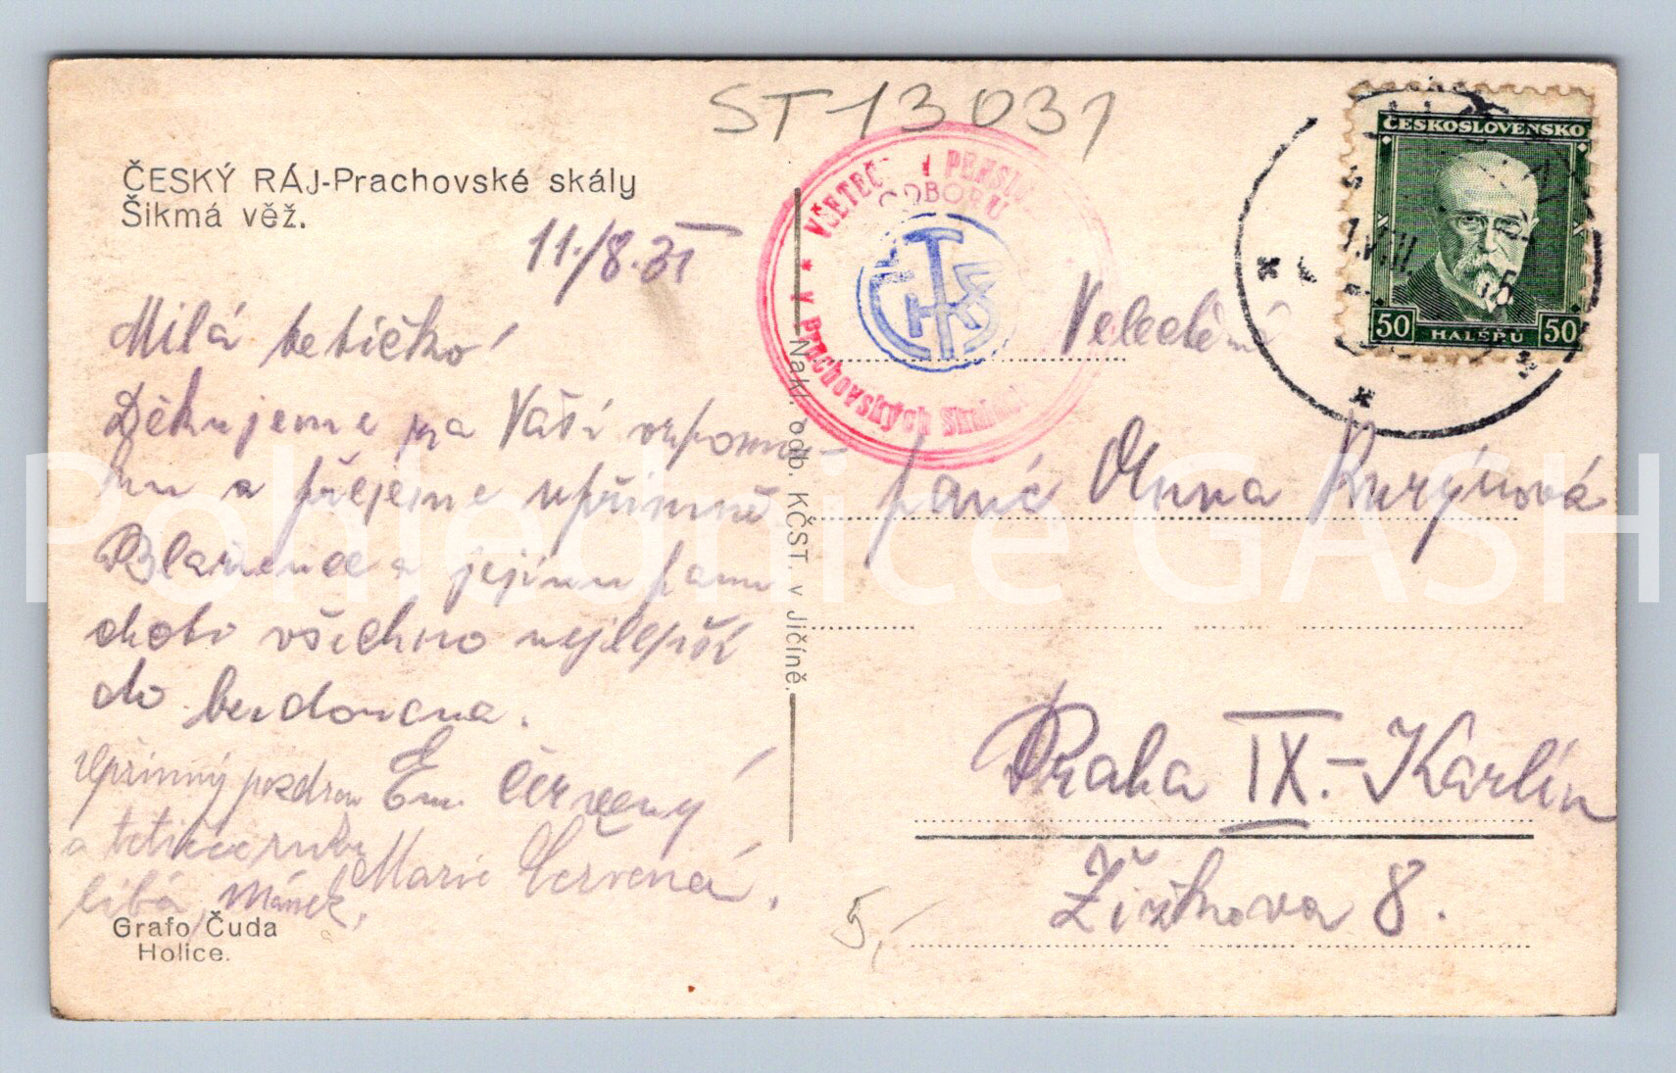 ST 13031
ČESKÝ RÁJ-Prachovské skály
Šikmá věž.
11./8. 31
Milá tetičko!
Děkujeme za Vaší vzpomí-
nku a přejeme upřímně
Blažence a jejímu panu
choti všechno nejlepší
do budoucna.
Upřímný pozdrav Em. Červený
a tetičce ruku
líbá, Mánek,
Marie Červená.
Grafo Čuda
Holice.
Nakl. odb. KČST. v Jičíně.
ODBORU
KČST
v Prachovských Skalách
ČESKOSLOVENSKO
50 HALÉŘŮ 50
Veledůstojná
paní Anna
Praha IX.-Karlín
Žižkova 8.
5,-
Pohlednice GASH